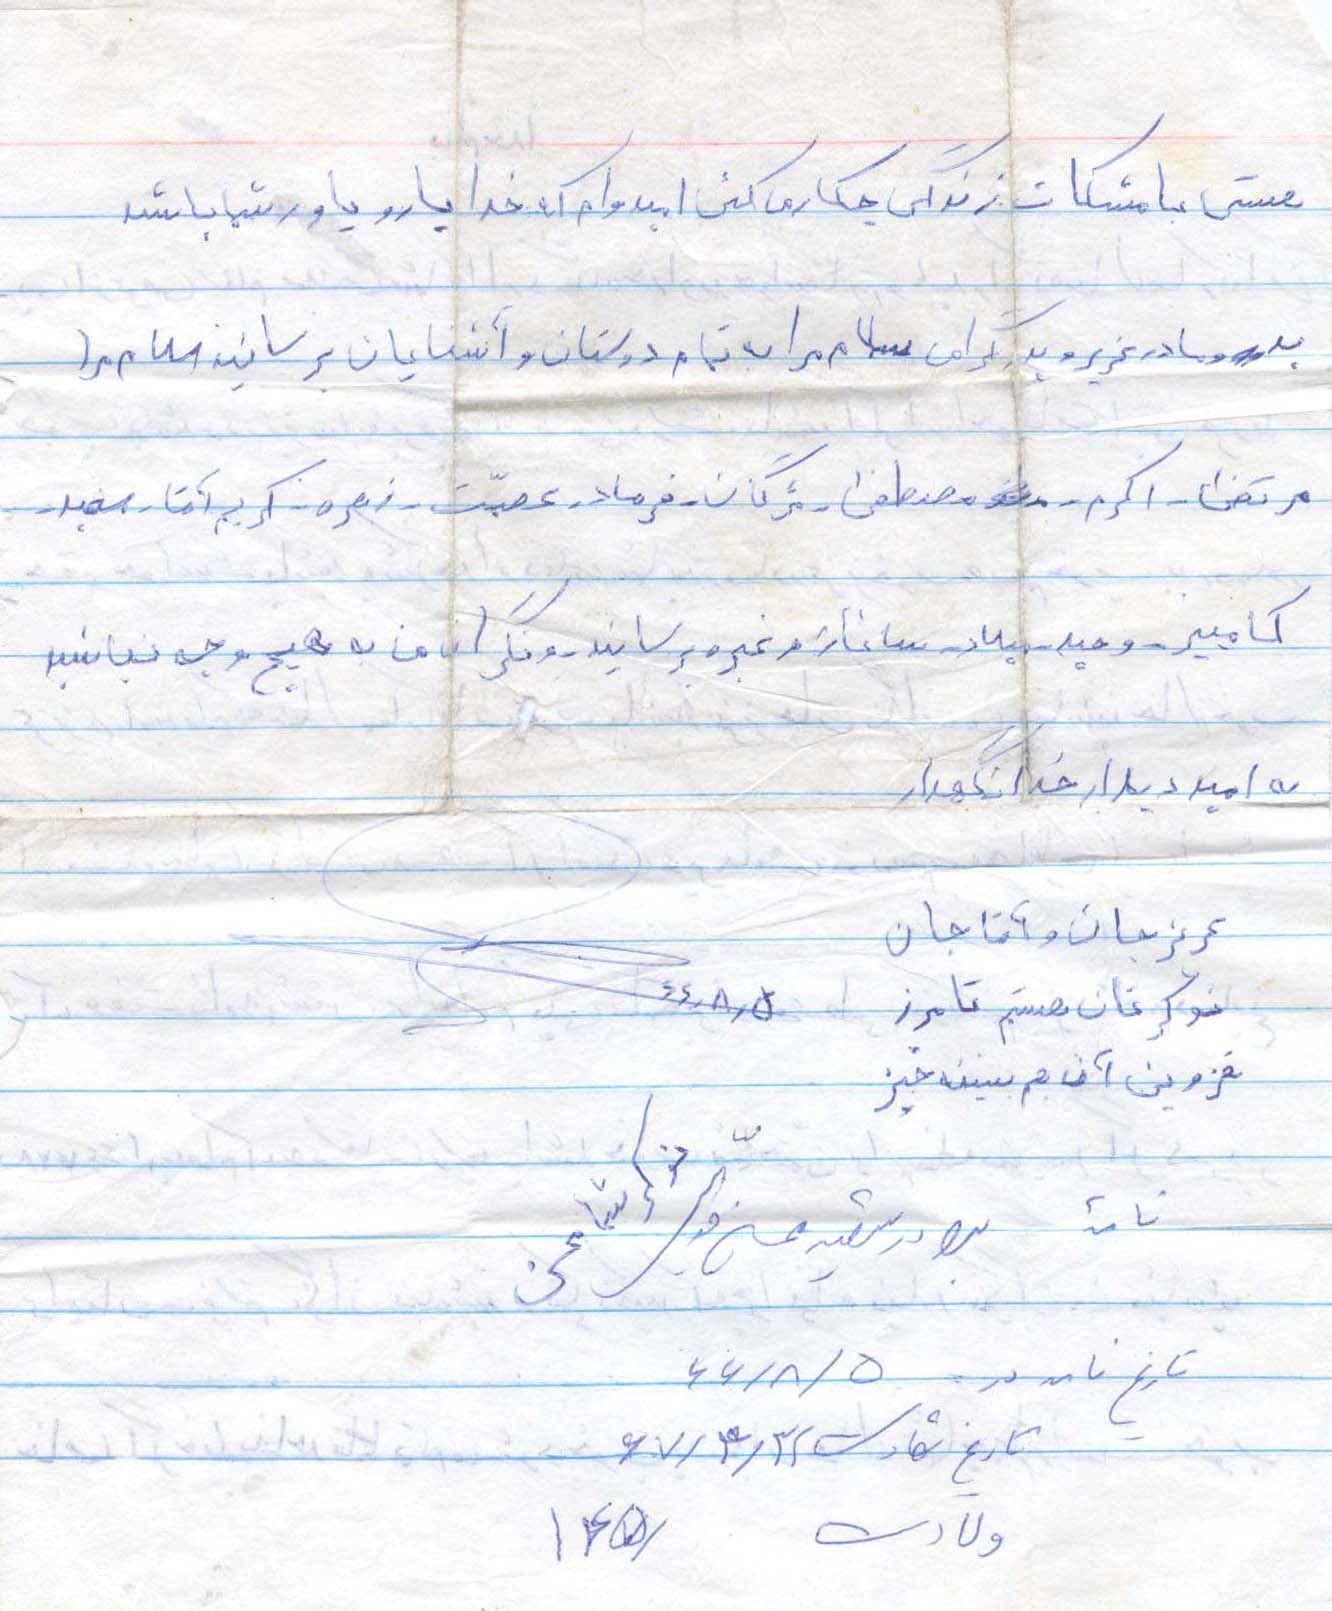 هستی با مشکلات زندگی چکار می کنی امیدوام که خدا یار و یاور شما باشد
پدر و مادر عزیز و پدر گرامی سلام مرا به تمام دوستان و آشنایان برسانید سلام مرا
مرتضی - اکرم - مصطفی - مژگان - فرهاد - عصمت - زهره - کریم آقا - سعید -
کامبیز - وحید - میلاد - ساناز و غیره برسانید و نگران من به هیچ وجه نباشید
به امید دیدار خدانگهدار
عزیز جان و آقا جان
نوکرتان هستم تا مرز
۶۶/۸/۵
قزوین آقام سینه خیز
نامه برادر شهید
تاریخ نامه در ۶۶/۸/۵
تاریخ شهادت ۶۷/۳/۲۲
ولادت